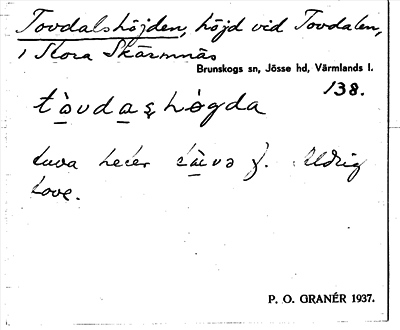 Tovdalshöjden, höjd vid Tovdalen,
i Stora Skärmnäs
Brunskogs sn, Jösse hd, Värmlands l.
138.
tòvdaʂhøgda
tuva heter tàvə f. Aldrig
tove.
P. O. GRANÉR 1937.